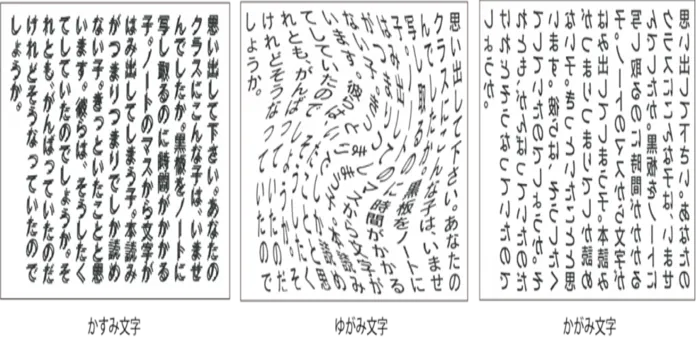 思い出して下さい。あなたの
クラスにこんな子は、いませ
んでしたか。黒板をノートに
写し取るのに時間がかかる
子。ノートのマスから文字が
はみ出してしまう子。本読み
がつまりつまりでしか読め
ない子。きっといたことと思
います。彼らは、そうしたく
てしていたのでしょうか。そ
れとも、がんばっていたのだ
けれどそうなっていたので
しょうか。
かすみ文字
思い出して下さい。あなたの
クラスにこんな子は、いませ
んでしたか。黒板をノートに
写し取るのに時間がかかる
子。ノートのマスから文字が
はみ出してしまう子。本読み
がつまりつまりでしか読め
ない子。きっといたことと思
います。彼らは、そうしたく
てしていたのでしょうか。そ
れとも、がんばっていたのだ
けれどそうなっていたので
しょうか。
ゆがみ文字
思い出して下さい。あなたの
クラスにこんな子は、いませ
んでしたか。黒板をノートに
写し取るのに時間がかかる
子。ノートのマスから文字が
はみ出してしまう子。本読み
がつまりつまりでしか読め
ない子。きっといたことと思
います。彼らは、そうしたく
てしていたのでしょうか。そ
れとも、がんばっていたのだ
けれどそうなっていたので
しょうか。
かがみ文字